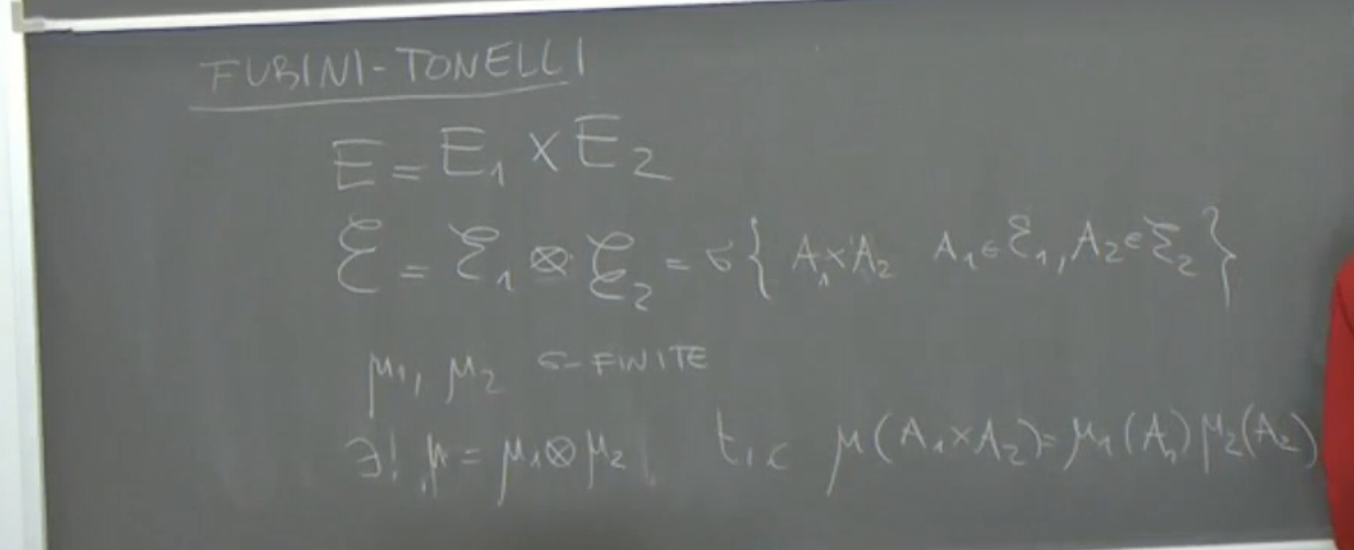 FUBINI-TONELLI
E = E₁ × E₂
ℰ = ℰ₁ ⊗ ℰ₂ = σ{ A₁×A₂ A₁∈ℰ₁, A₂∈ℰ₂ }
μ₁, μ₂ σ-FINITE
∃! μ = μ₁⊗μ₂ t.c μ(A₁×A₂)=μ₁(A₁)μ₂(A₂)